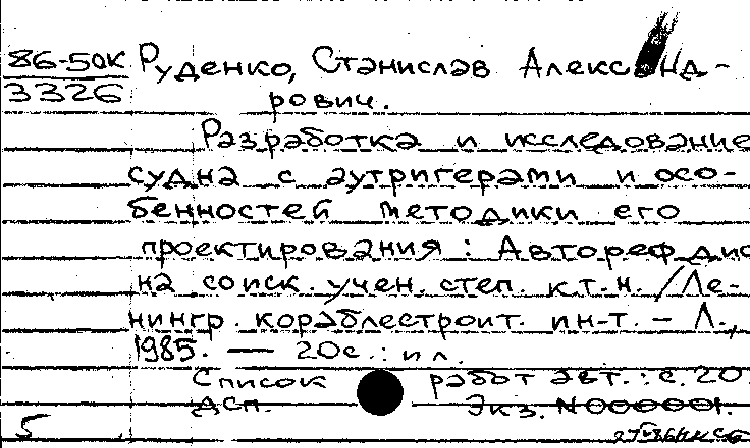 86-50к Руденко, Станислав Александ-
3326 рович.
Разработка и исследование
судна с аутригерами и осо-
бенностей методики его
проектирования : Автореф дис
на соиск. учен. степ. к.т.н. / Ле-
нингр. кораблестроит. ин-т. — Л.,
1985. — 20с. : ил.
Список работ авт. : с. 20
Дсп. Экз. N000001.
5